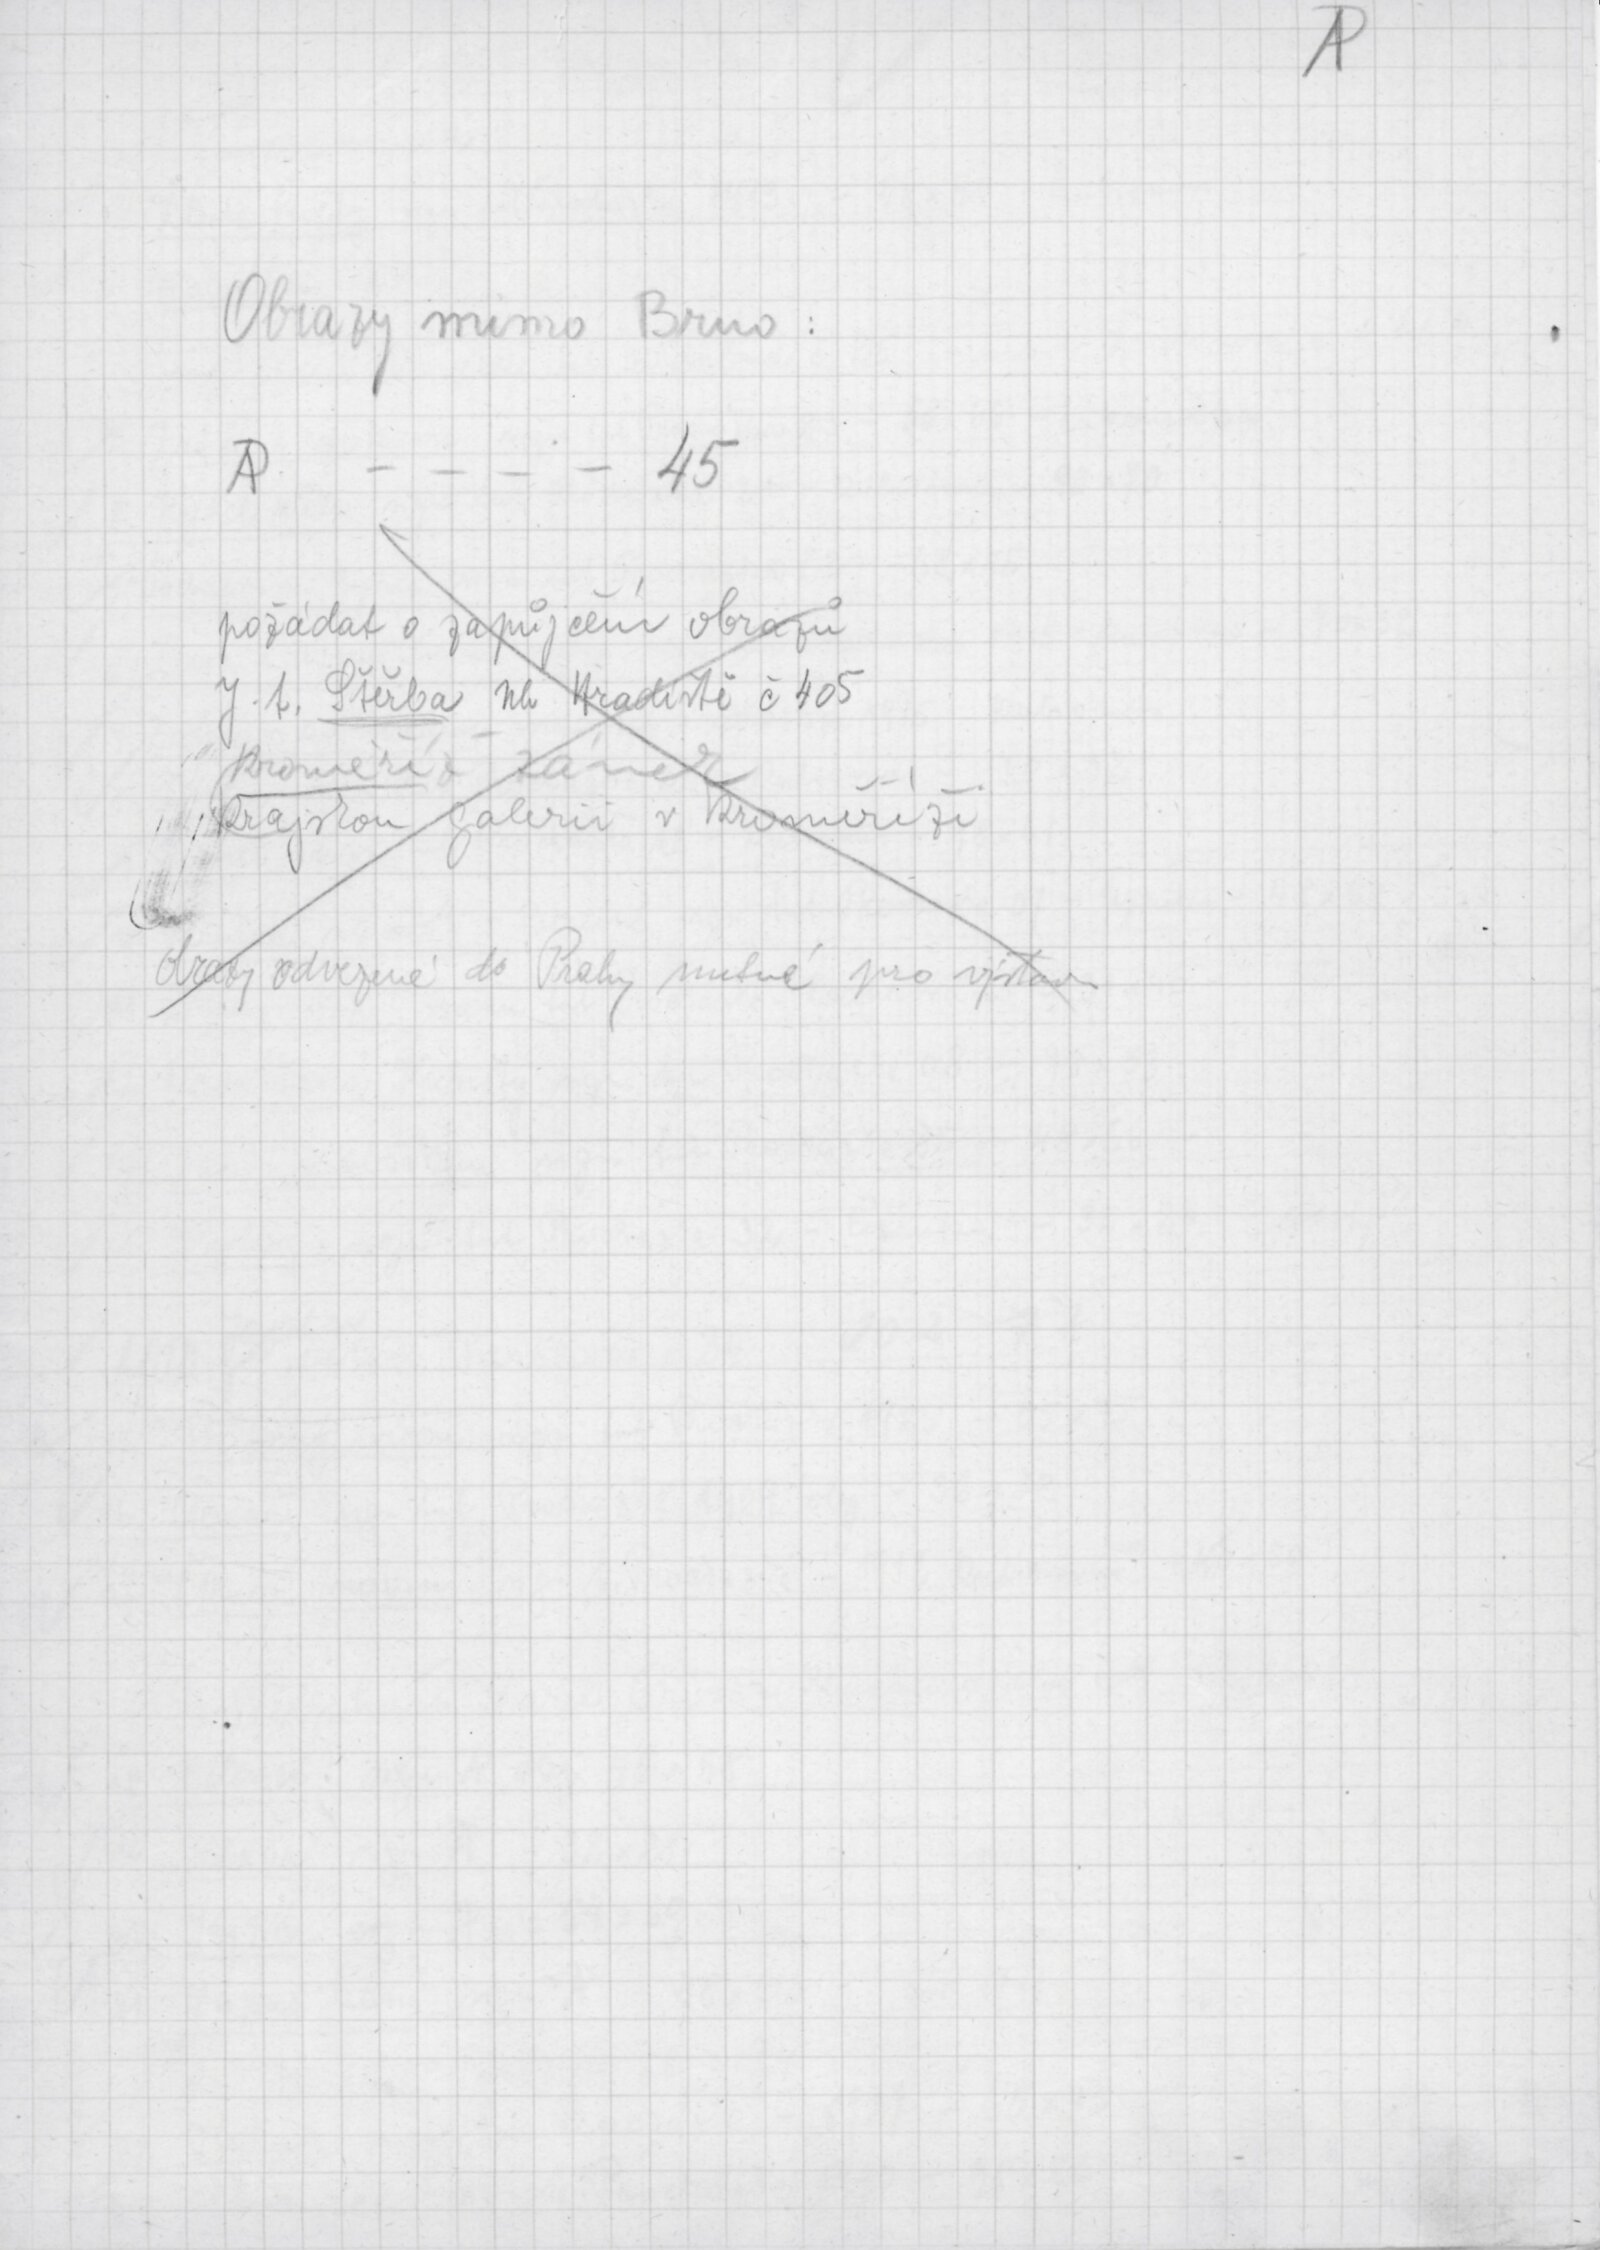 AP
Obrazy mimo Brno:
AP - - - - 45
požádat o zapůjčení obrazů
J. f. Štěrba Uh Hradiště č 405
Kroměříž zámek
Krajskou galerii v Kroměříži
obrazy odvezené do Prahy nutné pro výstavu